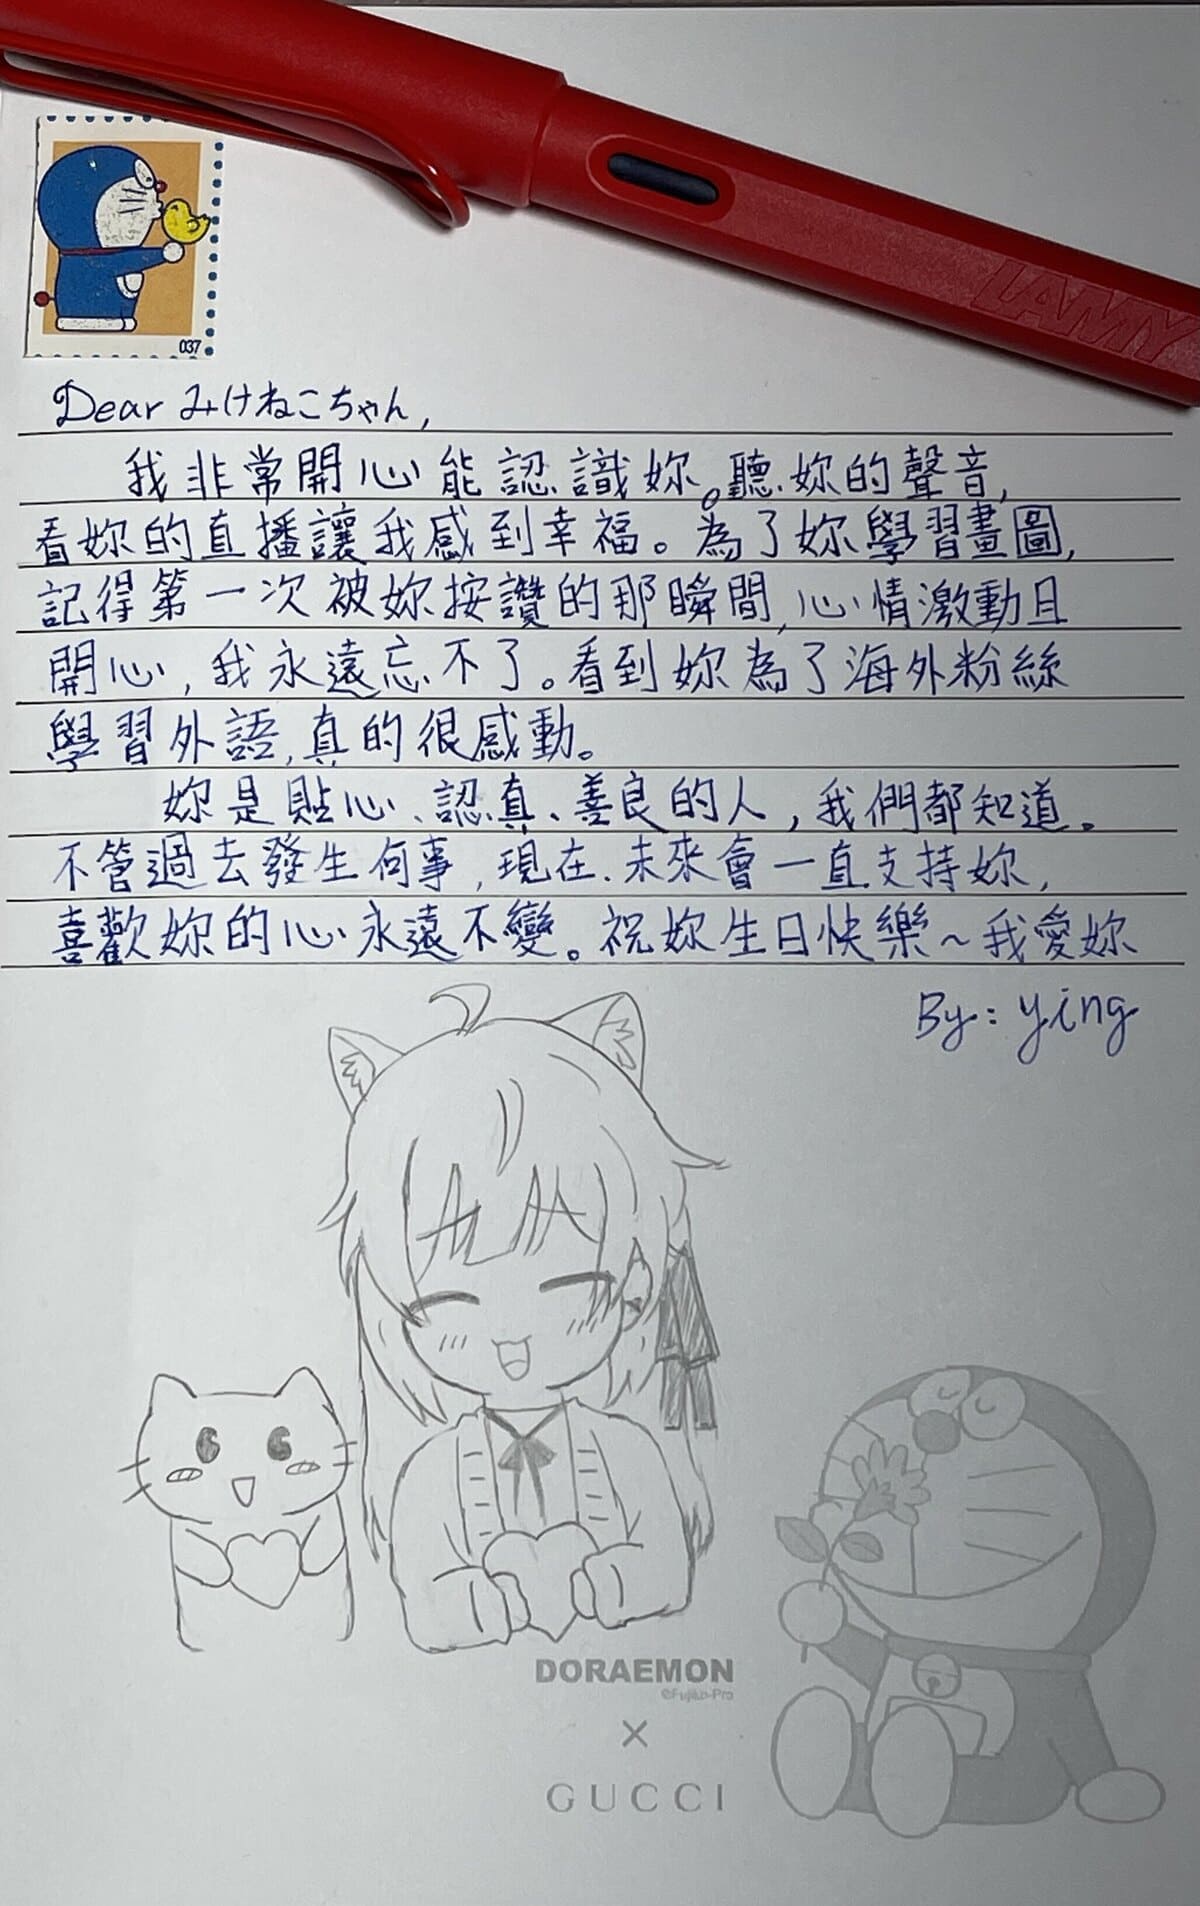 LAMY
037
Dear みけねこちゃん,
我非常開心能認識妳。聽妳的聲音,
看妳的直播讓我感到幸福。為了妳學習畫圖,
記得第一次被妳按讚的那瞬間,心情激動且
開心,我永遠忘不了。看到妳為了海外粉絲
學習外語,真的很感動。
妳是貼心、認真、善良的人,我們都知道。
不管過去發生何事,現在、未來會一直支持妳,
喜歡妳的心永遠不變。祝妳生日快樂~我愛妳
By: ying
DORAEMON
©Fujiko-Pro
×
GUCCI